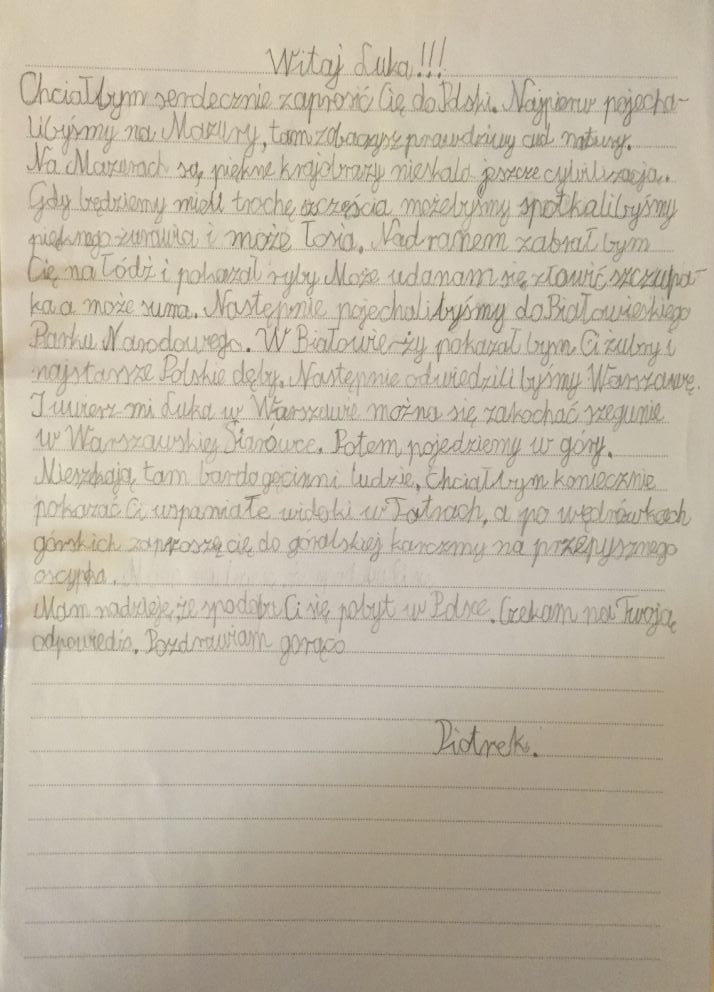 Witaj Luka!!!
Chciałbym serdecznie zaprosić Cię do Polski. Najpierw pojecha-
libyśmy na Mazury, tam zobaczysz prawdziwy cud natury.
Na Mazurach są piękne krajobrazy nieskalo jeszcze cywilizacja.
Gdy będziemy mieli trochę szczęścia możebyśmy spotkalibyśmy
pięknego żurawia i może łosia. Nad ranem zabrał bym
Cię na łódź i pokazał ryby Może uda nam się złowić szczupa-
ka a może suma. Następnie pojechalibyśmy do Białowieskiego
Parku Narodowego. W Białowieży pokazał bym Ci żubry i
najstarsze Polskie dęby. Następnie odwiedzili byśmy Warszawę.
I uwierz mi Luka w Warszawie można się zakochać szegunie
w Warszawskiej Starówce. Potem pojedziemy w góry.
Mieszkają tam bardo gęcinni ludzie. Chciałbym koniecznie
pokazać Ci wspaniałe widoki w Tatrach, a po wędrówkach
górskich zaproszę cię do góralskiej karczmy na przepysznego
oscypka.
Mam nadzieję, że spodoba Ci się pobyt w Polsce. Czekam na Twoją
odpowiedź. Pozdrawiam gorąco
Piotrek.